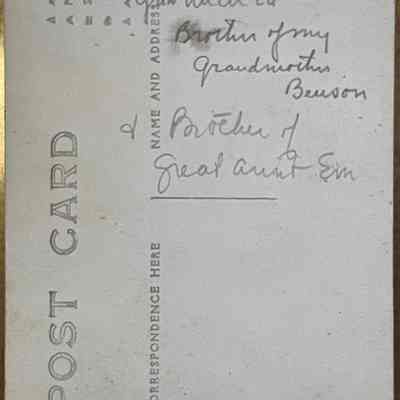 Brother of my
Grandmother
Benson
& Brother of
Great Aunt Em
POST CARD
NAME AND ADDRESS
CORRESPONDENCE HERE